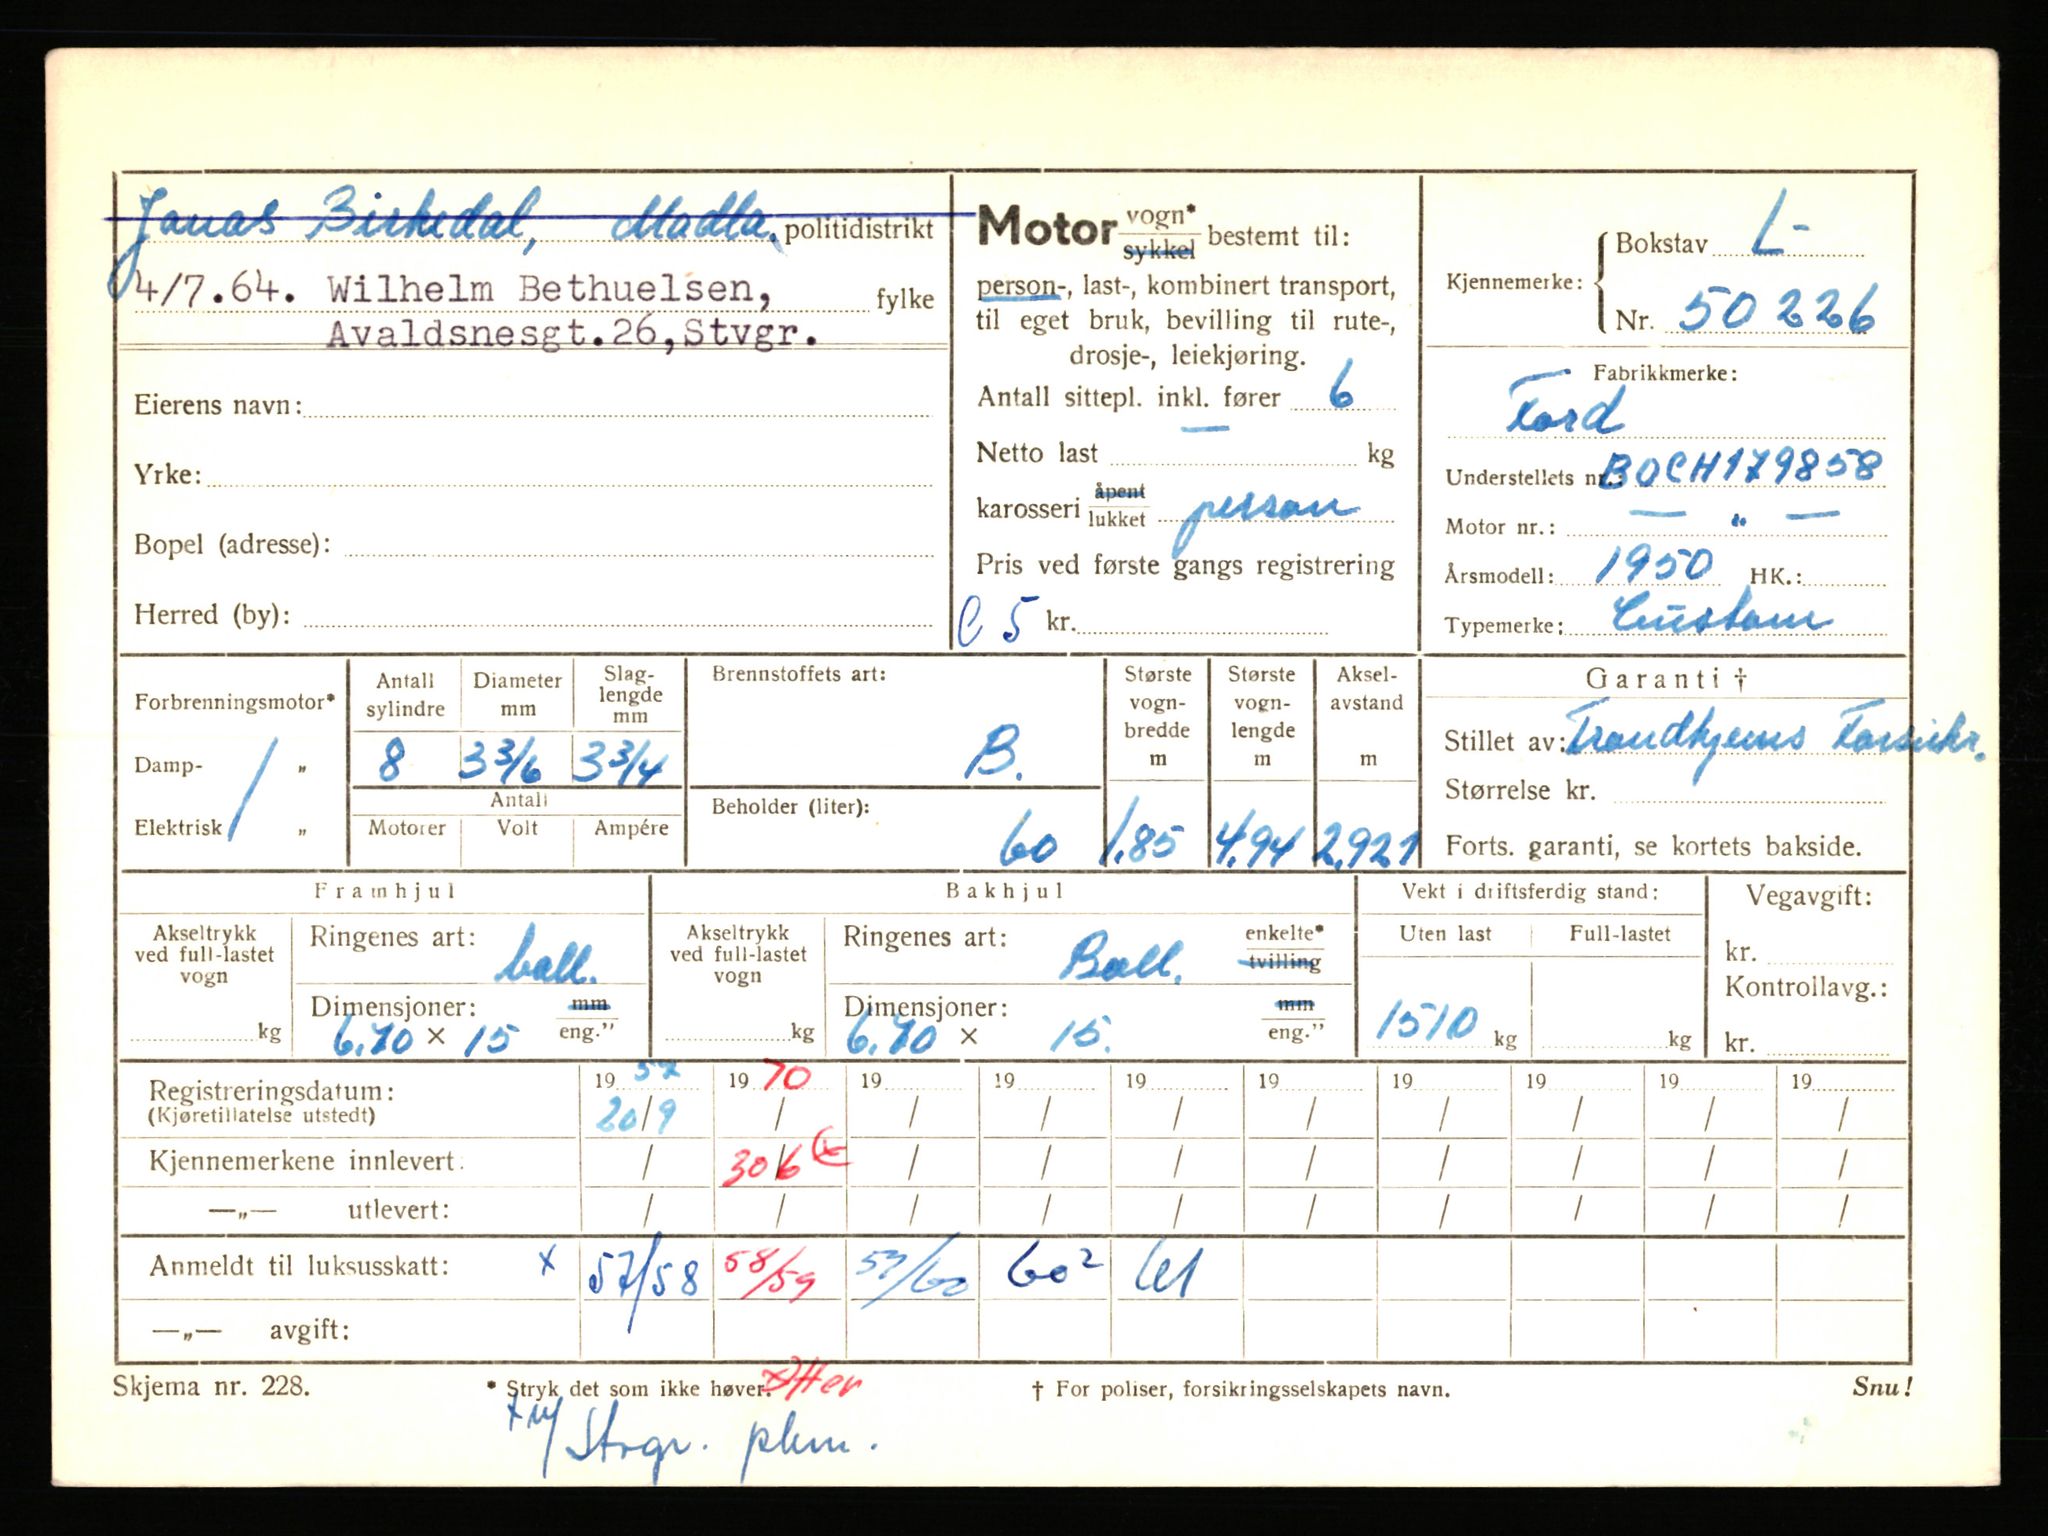 Jonas Birkedal, Madla. politidistrikt
4/7.64. Wilhelm Bethuelsen, fylke
Avaldsnesgt.26,Stvgr.
Eierens navn:
Yrke:
Bopel (adresse):
Herred (by):
Motor vogn* sykkel bestemt til:
person-, last-, kombinert transport,
til eget bruk, bevilling til rute-,
drosje-, leiekjøring.
Antall sittepl. inkl. fører 6
Netto last — kg
karosseri åpent lukket person
Pris ved første gangs registrering
C 5 kr.
Kjennemerke: Bokstav L-
Nr. 50226
Fabrikkmerke:
Ford
Understellets nr.: BOCH179858
Motor nr.: — " —
Årsmodell: 1950 HK.:
Typemerke: Custom
Forbrenningsmotor*
Damp- "
Elektrisk "
Antall sylindre Diameter mm Slag-lengde mm
8 3 3/16 3 3/4
Antall
Motorer Volt Ampére
Brennstoffets art:
B.
Beholder (liter):
60
Største vogn-bredde m
1.85
Største vogn-lengde m
4.94
Aksel-avstand m
2.921
Garanti †
Stillet av: Trondhjems Forsikr.
Størrelse kr.
Forts. garanti, se kortets bakside.
Framhjul
Akseltrykk ved full-lastet vogn kg
Ringenes art: ball.
Dimensjoner: mm
6.70 × 15 eng."
Bakhjul
Akseltrykk ved full-lastet vogn kg
Ringenes art: Ball. enkelte* tvilling
Dimensjoner: mm
6.70 × 15. eng."
Vekt i driftsferdig stand:
Uten last Full-lastet
1510 kg kg
Vegavgift:
kr.
Kontrollavg.:
kr.
Registreringsdatum: 19 57 19 70 19 19 19 19 19 19 19 19
(Kjøretillatelse utstedt) 20/9 / / / / / / / / /
Kjennemerkene innlevert: / 30/6 / / / / / / / /
—„— utlevert: / / / / / / / / / /
Anmeldt til luksusskatt: x 57/58 58/59 59/60 60² 61
—„— avgift:
Skjema nr. 228. * Stryk det som ikke høver. † For poliser, forsikringsselskapets navn. Snu!
Stvgr. pkm.